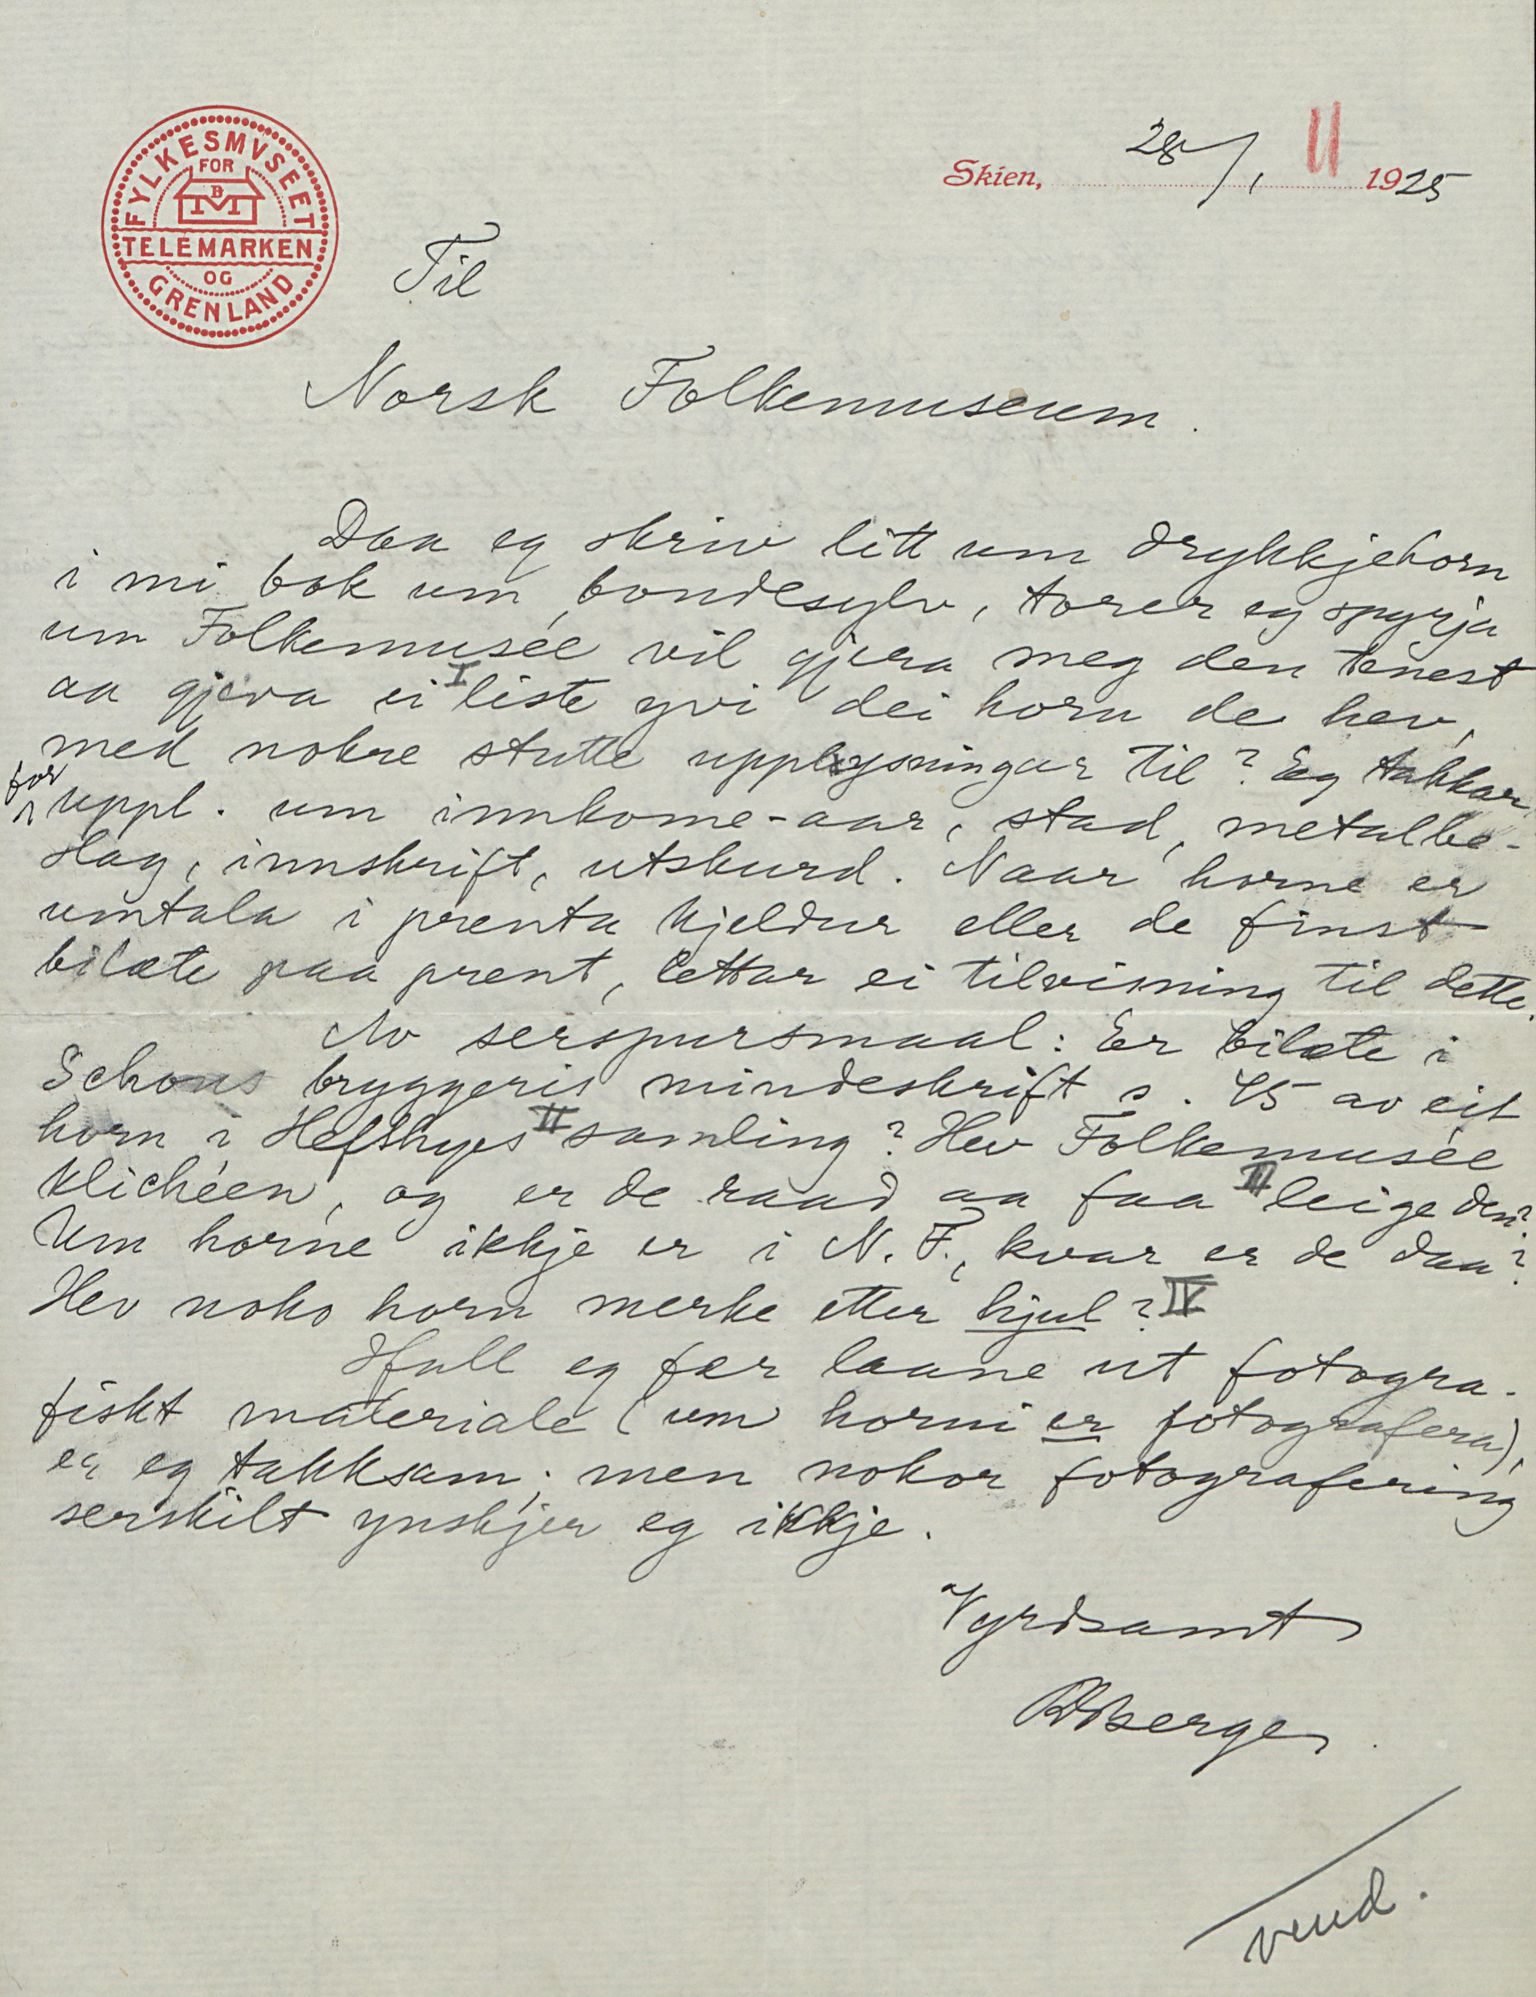 FYLKESMVSEET
FOR
B
M
TELEMARKEN
OG
GRENLAND
Skien, 28/1 1925
11
Til
Norsk Folkemuseum.
Daa eg skriv litt um drykkjehorn
i mi bok um bondesylv, torer eg spyrja
um Folkemusée vil gjera meg den tenest
aa gjeva ei I liste yvi dei horn de hev,
med nokre stutte upplysningar til? Eg takkar
for uppl. um innkome-aar, stad, metalbe-
slag, innskrift, utskurd. Naar horne er
umtala i prenta kjeldur eller de finst
bilæte paa prent, lettar ei tilvisning til dette.
Av serspursmaal: Er bilæte i
Schous bryggeris mindeskrift s. 45 av eit
horn i Heftyes II samling? Hev Folkemusée
klichéen, og er de raad aa faa III leige den?
Um horne ikkje er i N. F., kvar er de daa?
Hev noko horn merke etter hjul? IV
Ifall eg fær laane ut fotogra-
fiskt materiale (um horni er fotografera),
er eg takksam; men nokor fotografering
serskilt ynskjer eg ikkje.
Vyrdsamt
RBerge.
vend.